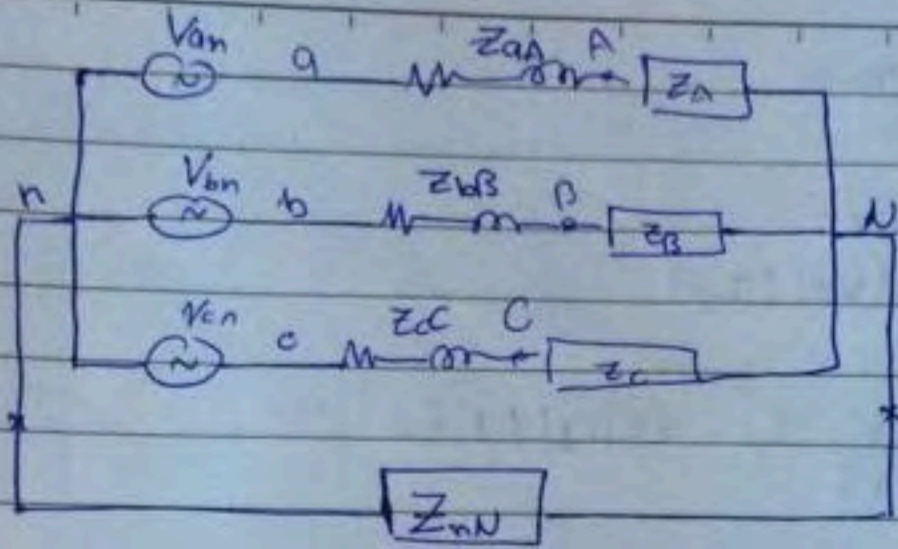 Van a ZaA A ZA
n Vbn b ZbB B ZB N
Vcn c ZcC C Zc
ZnN